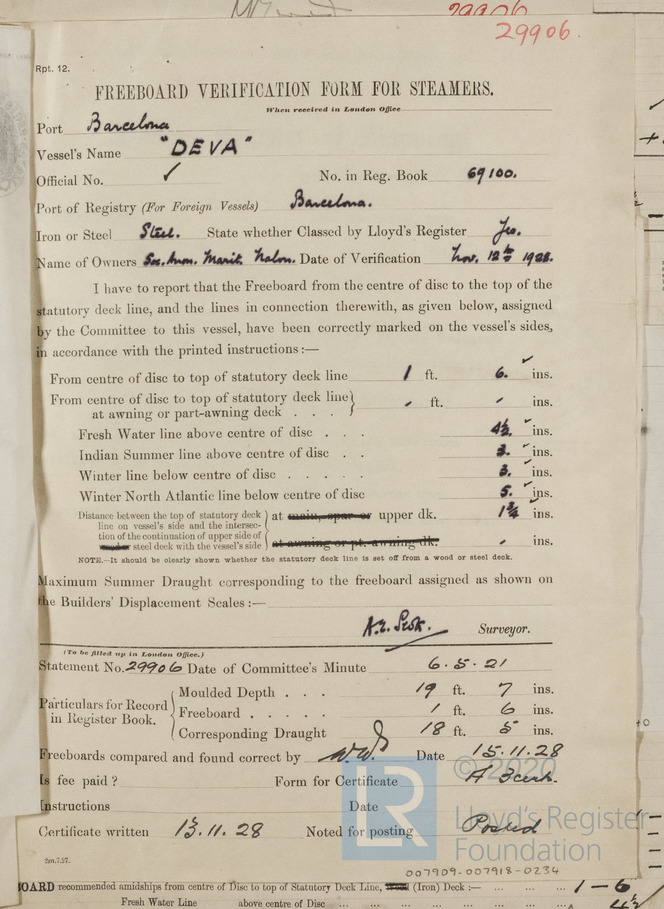 29906
29906.
Rpt. 12.
FREEBOARD VERIFICATION FORM FOR STEAMERS.
When received in London Office
Port Barcelona
Vessel's Name "DEVA"
Official No. ✓ No. in Reg. Book 69100.
Port of Registry (For Foreign Vessels) Barcelona.
Iron or Steel Steel. State whether Classed by Lloyd's Register Yes.
Name of Owners Soc. Anon. Marit. Nalon. Date of Verification Nov. 12th 1928.
I have to report that the Freeboard from the centre of disc to the top of the
statutory deck line, and the lines in connection therewith, as given below, assigned
by the Committee to this vessel, have been correctly marked on the vessel's sides,
in accordance with the printed instructions:—
From centre of disc to top of statutory deck line 1 ft. 6. ins.
From centre of disc to top of statutory deck line
at awning or part-awning deck . . . - ft. - ins.
Fresh Water line above centre of disc . . . 4½. ins.
Indian Summer line above centre of disc . . 3. ins.
Winter line below centre of disc . . . . . 3. ins.
Winter North Atlantic line below centre of disc 5. ins.
Distance between the top of statutory deck
line on vessel's side and the intersec-
tion of the continuation of upper side of
steel deck with the vessel's side
at main, spar or upper dk. 1¾ ins.
at awning or pt. awning dk. - ins.
NOTE.—It should be clearly shown whether the statutory deck line is set off from a wood or steel deck.
Maximum Summer Draught corresponding to the freeboard assigned as shown on
the Builders' Displacement Scales:—
Surveyor.
(To be filled up in London Office.)
Statement No. 29906 Date of Committee's Minute 6.5.21
Particulars for Record
in Register Book.
Moulded Depth . . . 19 ft. 7 ins.
Freeboard . . . . . 1 ft. 6 ins.
Corresponding Draught 18 ft. 5 ins.
Freeboards compared and found correct by Date 15.11.28
Is fee paid? Form for Certificate
Instructions Date
Certificate written 13.11.28 Noted for posting Posted
2m.7.27.
© 2020
LR
Lloyd's Register
Foundation
007909-007918-0234
BOARD recommended amidships from centre of Disc to top of Statutory Deck Line, (Iron) Deck :— 1-6
Fresh Water Line above centre of Disc 4½